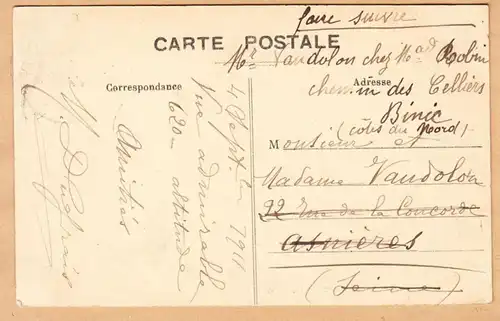 faire suivre
CARTE POSTALE
Mr Vandolon chez Mad Robin
Adresse
chemin des Celliers
Binic
(côtes du Nord)
Correspondance
4 Sept 1911
Vue admirable
620m altitude
Amitiés
Monsieur et
Madame Vandolon
22 Rue de la Concorde
Asnières
(Seine)